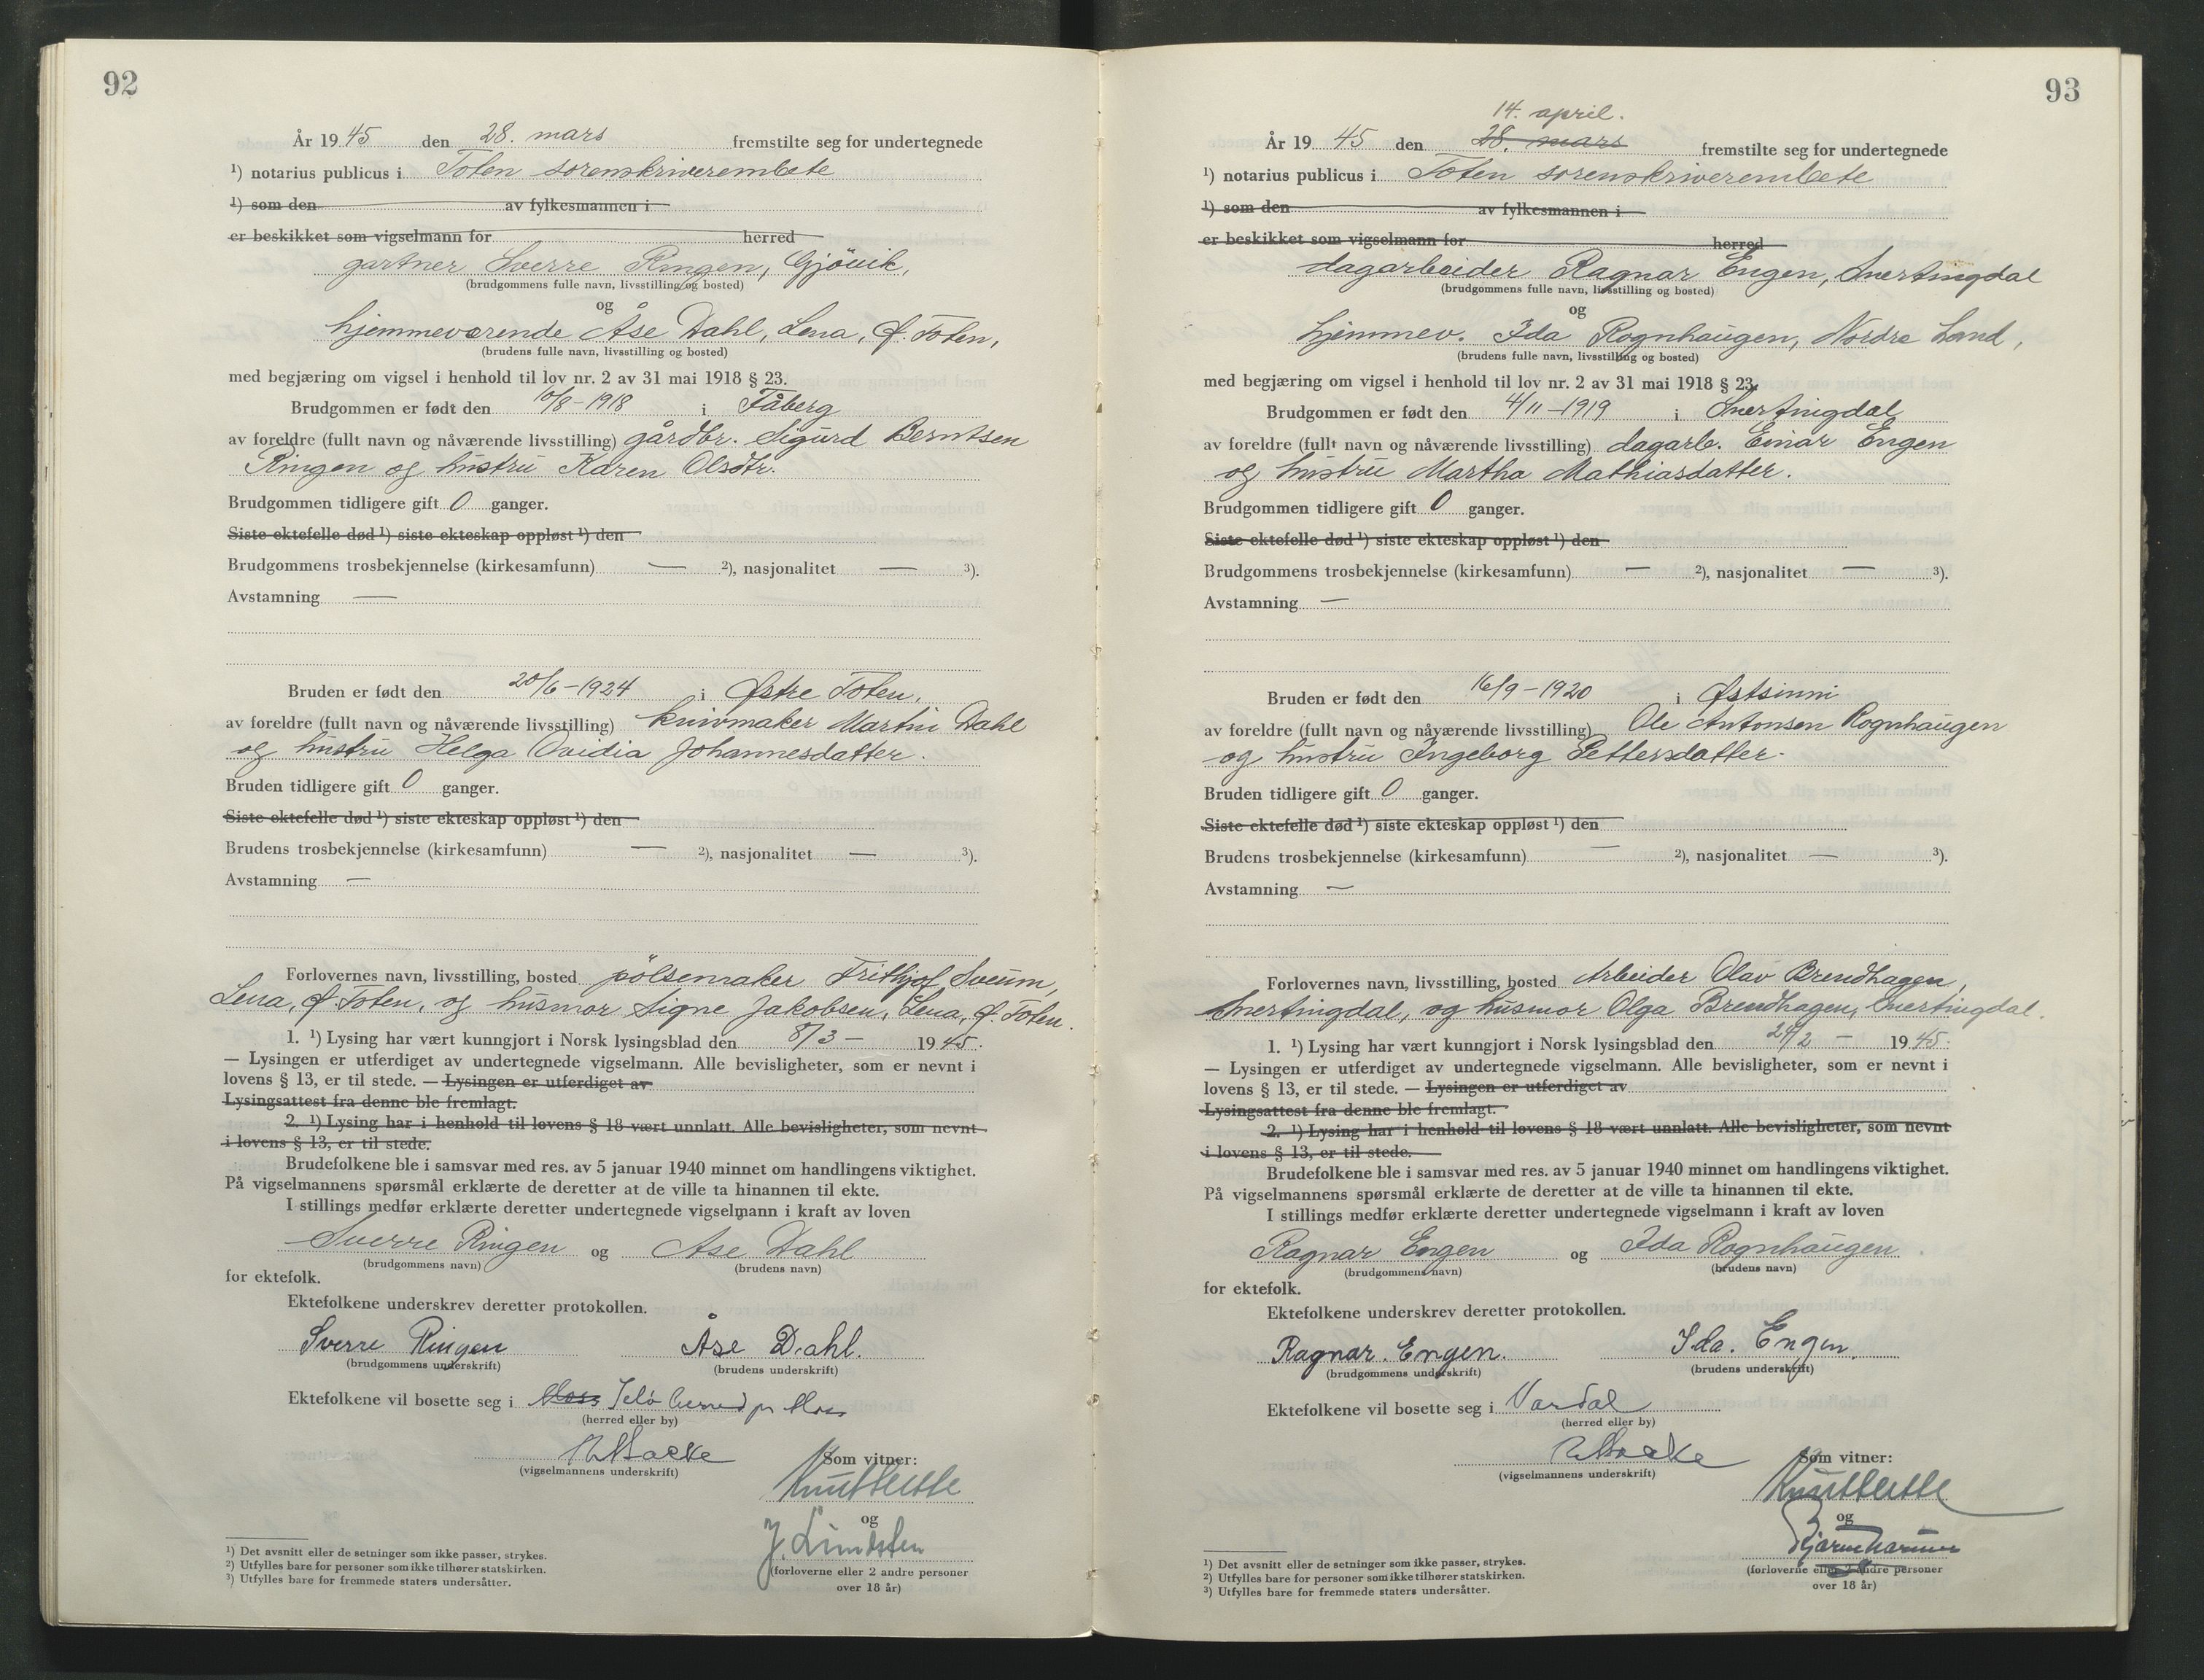 92
År 1945 den 28. mars fremstilte seg for undertegnede
¹) notarius publicus i Toten sorenskriverembete
¹) som den av fylkesmannen i
er beskikket som vigselmann for herred
gartner Sverre Ringen, Gjövik,
(brudgommens fulle navn, livsstilling og bosted)
og
hjemmeværende Åse Dahl, Lena, Ø. Toten,
(brudens fulle navn, livsstilling og bosted)
med begjæring om vigsel i henhold til lov nr. 2 av 31 mai 1918 § 23.
Brudgommen er født den 10/8-1918 i Fåberg
av foreldre (fullt navn og nåværende livsstilling) gårdbr. Sigurd Berntsen
Ringen og hustru Karen Olsdtr.
Brudgommen tidligere gift 0 ganger.
Siste ektefelle død ¹) siste ekteskap oppløst ¹) den
Brudgommens trosbekjennelse (kirkesamfunn) — ²), nasjonalitet — ³).
Avstamning —
Bruden er født den 20/6-1924 i Østre Toten,
av foreldre (fullt navn og nåværende livsstilling) knivmaker Martin Dahl
og hustru Helga Ovidia Johannesdatter.
Bruden tidligere gift 0 ganger.
Siste ektefelle død ¹) siste ekteskap oppløst ¹) den
Brudens trosbekjennelse (kirkesamfunn) — ²), nasjonalitet — ³).
Avstamning —
Forlovernes navn, livsstilling, bosted pölsemaker Frithjof Sveum,
Lena, Ø. Toten, og husmor Signe Jakobsen, Lena, Ø. Toten.
1. ¹) Lysing har vært kunngjort i Norsk lysingsblad den 8/3 — 1945.
— Lysingen er utferdiget av undertegnede vigselmann. Alle bevisligheter, som er nevnt i
lovens § 13, er til stede. — Lysingen er utferdiget av
Lysingsattest fra denne ble fremlagt.
2. ¹) Lysing har i henhold til lovens § 18 vært unnlatt. Alle bevisligheter, som nevnt
i lovens § 13, er til stede.
Brudefolkene ble i samsvar med res. av 5 januar 1940 minnet om handlingens viktighet.
På vigselmannens spørsmål erklærte de deretter at de ville ta hinannen til ekte.
I stillings medfør erklærte deretter undertegnede vigselmann i kraft av loven
Sverre Ringen og Åse Dahl
(brudgommens navn) (brudens navn)
for ektefolk.
Ektefolkene underskrev deretter protokollen.
Sverre Ringen Åse Dahl.
(brudgommens underskrift) (brudens underskrift)
Ektefolkene vil bosette seg i Moss Jelø herred pr Moss
(herred eller by)
(vigselmannens underskrift)
Som vitner:
og
J. Lundsten
(forloverne eller 2 andre personer
over 18 år)
¹) Det avsnitt eller de setninger som ikke passer, strykes.
²) Utfylles bare for personer som ikke tilhører statskirken.
³) Utfylles bare for fremmede staters undersåtter.
93
14. april.
År 1945 den 28. mars fremstilte seg for undertegnede
¹) notarius publicus i Toten sorenskriverembete
¹) som den av fylkesmannen i
er beskikket som vigselmann for herred
dagarbeider Ragnar Engen, Snertingdal
(brudgommens fulle navn, livsstilling og bosted)
og
hjemmev. Ida Rognhaugen, Nordre Land,
(brudens fulle navn, livsstilling og bosted)
med begjæring om vigsel i henhold til lov nr. 2 av 31 mai 1918 § 23.
Brudgommen er født den 4/11-1919 i Snertingdal
av foreldre (fullt navn og nåværende livsstilling) dagarb. Einar Engen
og hustru Martha Mathiasdatter.
Brudgommen tidligere gift 0 ganger.
Siste ektefelle død ¹) siste ekteskap oppløst ¹) den
Brudgommens trosbekjennelse (kirkesamfunn) — ²), nasjonalitet — ³).
Avstamning —
Bruden er født den 16/9-1920 i Østsinni
av foreldre (fullt navn og nåværende livsstilling) Ole Antonsen Rognhaugen
og hustru Ingeborg Pettersdatter.
Bruden tidligere gift 0 ganger.
Siste ektefelle død ¹) siste ekteskap oppløst ¹) den
Brudens trosbekjennelse (kirkesamfunn) — ²), nasjonalitet — ³).
Avstamning —
Forlovernes navn, livsstilling, bosted Arbeider Olav Brendhagen,
Snertingdal, og husmor Olga Brendhagen, Snertingdal.
1. ¹) Lysing har vært kunngjort i Norsk lysingsblad den /2 — 1945.
— Lysingen er utferdiget av undertegnede vigselmann. Alle bevisligheter, som er nevnt i
lovens § 13, er til stede. — Lysingen er utferdiget av
Lysingsattest fra denne ble fremlagt.
2. ¹) Lysing har i henhold til lovens § 18 vært unnlatt. Alle bevisligheter, som nevnt
i lovens § 13, er til stede.
Brudefolkene ble i samsvar med res. av 5 januar 1940 minnet om handlingens viktighet.
På vigselmannens spørsmål erklærte de deretter at de ville ta hinannen til ekte.
I stillings medfør erklærte deretter undertegnede vigselmann i kraft av loven
Ragnar Engen og Ida Rognhaugen.
(brudgommens navn) (brudens navn)
for ektefolk.
Ektefolkene underskrev deretter protokollen.
Ragnar. Engen. Ida. Engen.
(brudgommens underskrift) (brudens underskrift)
Ektefolkene vil bosette seg i Vardal
(herred eller by)
(vigselmannens underskrift)
Som vitner:
og
(forloverne eller 2 andre personer
over 18 år)
¹) Det avsnitt eller de setninger som ikke passer, strykes.
²) Utfylles bare for personer som ikke tilhører statskirken.
³) Utfylles bare for fremmede staters undersåtter.